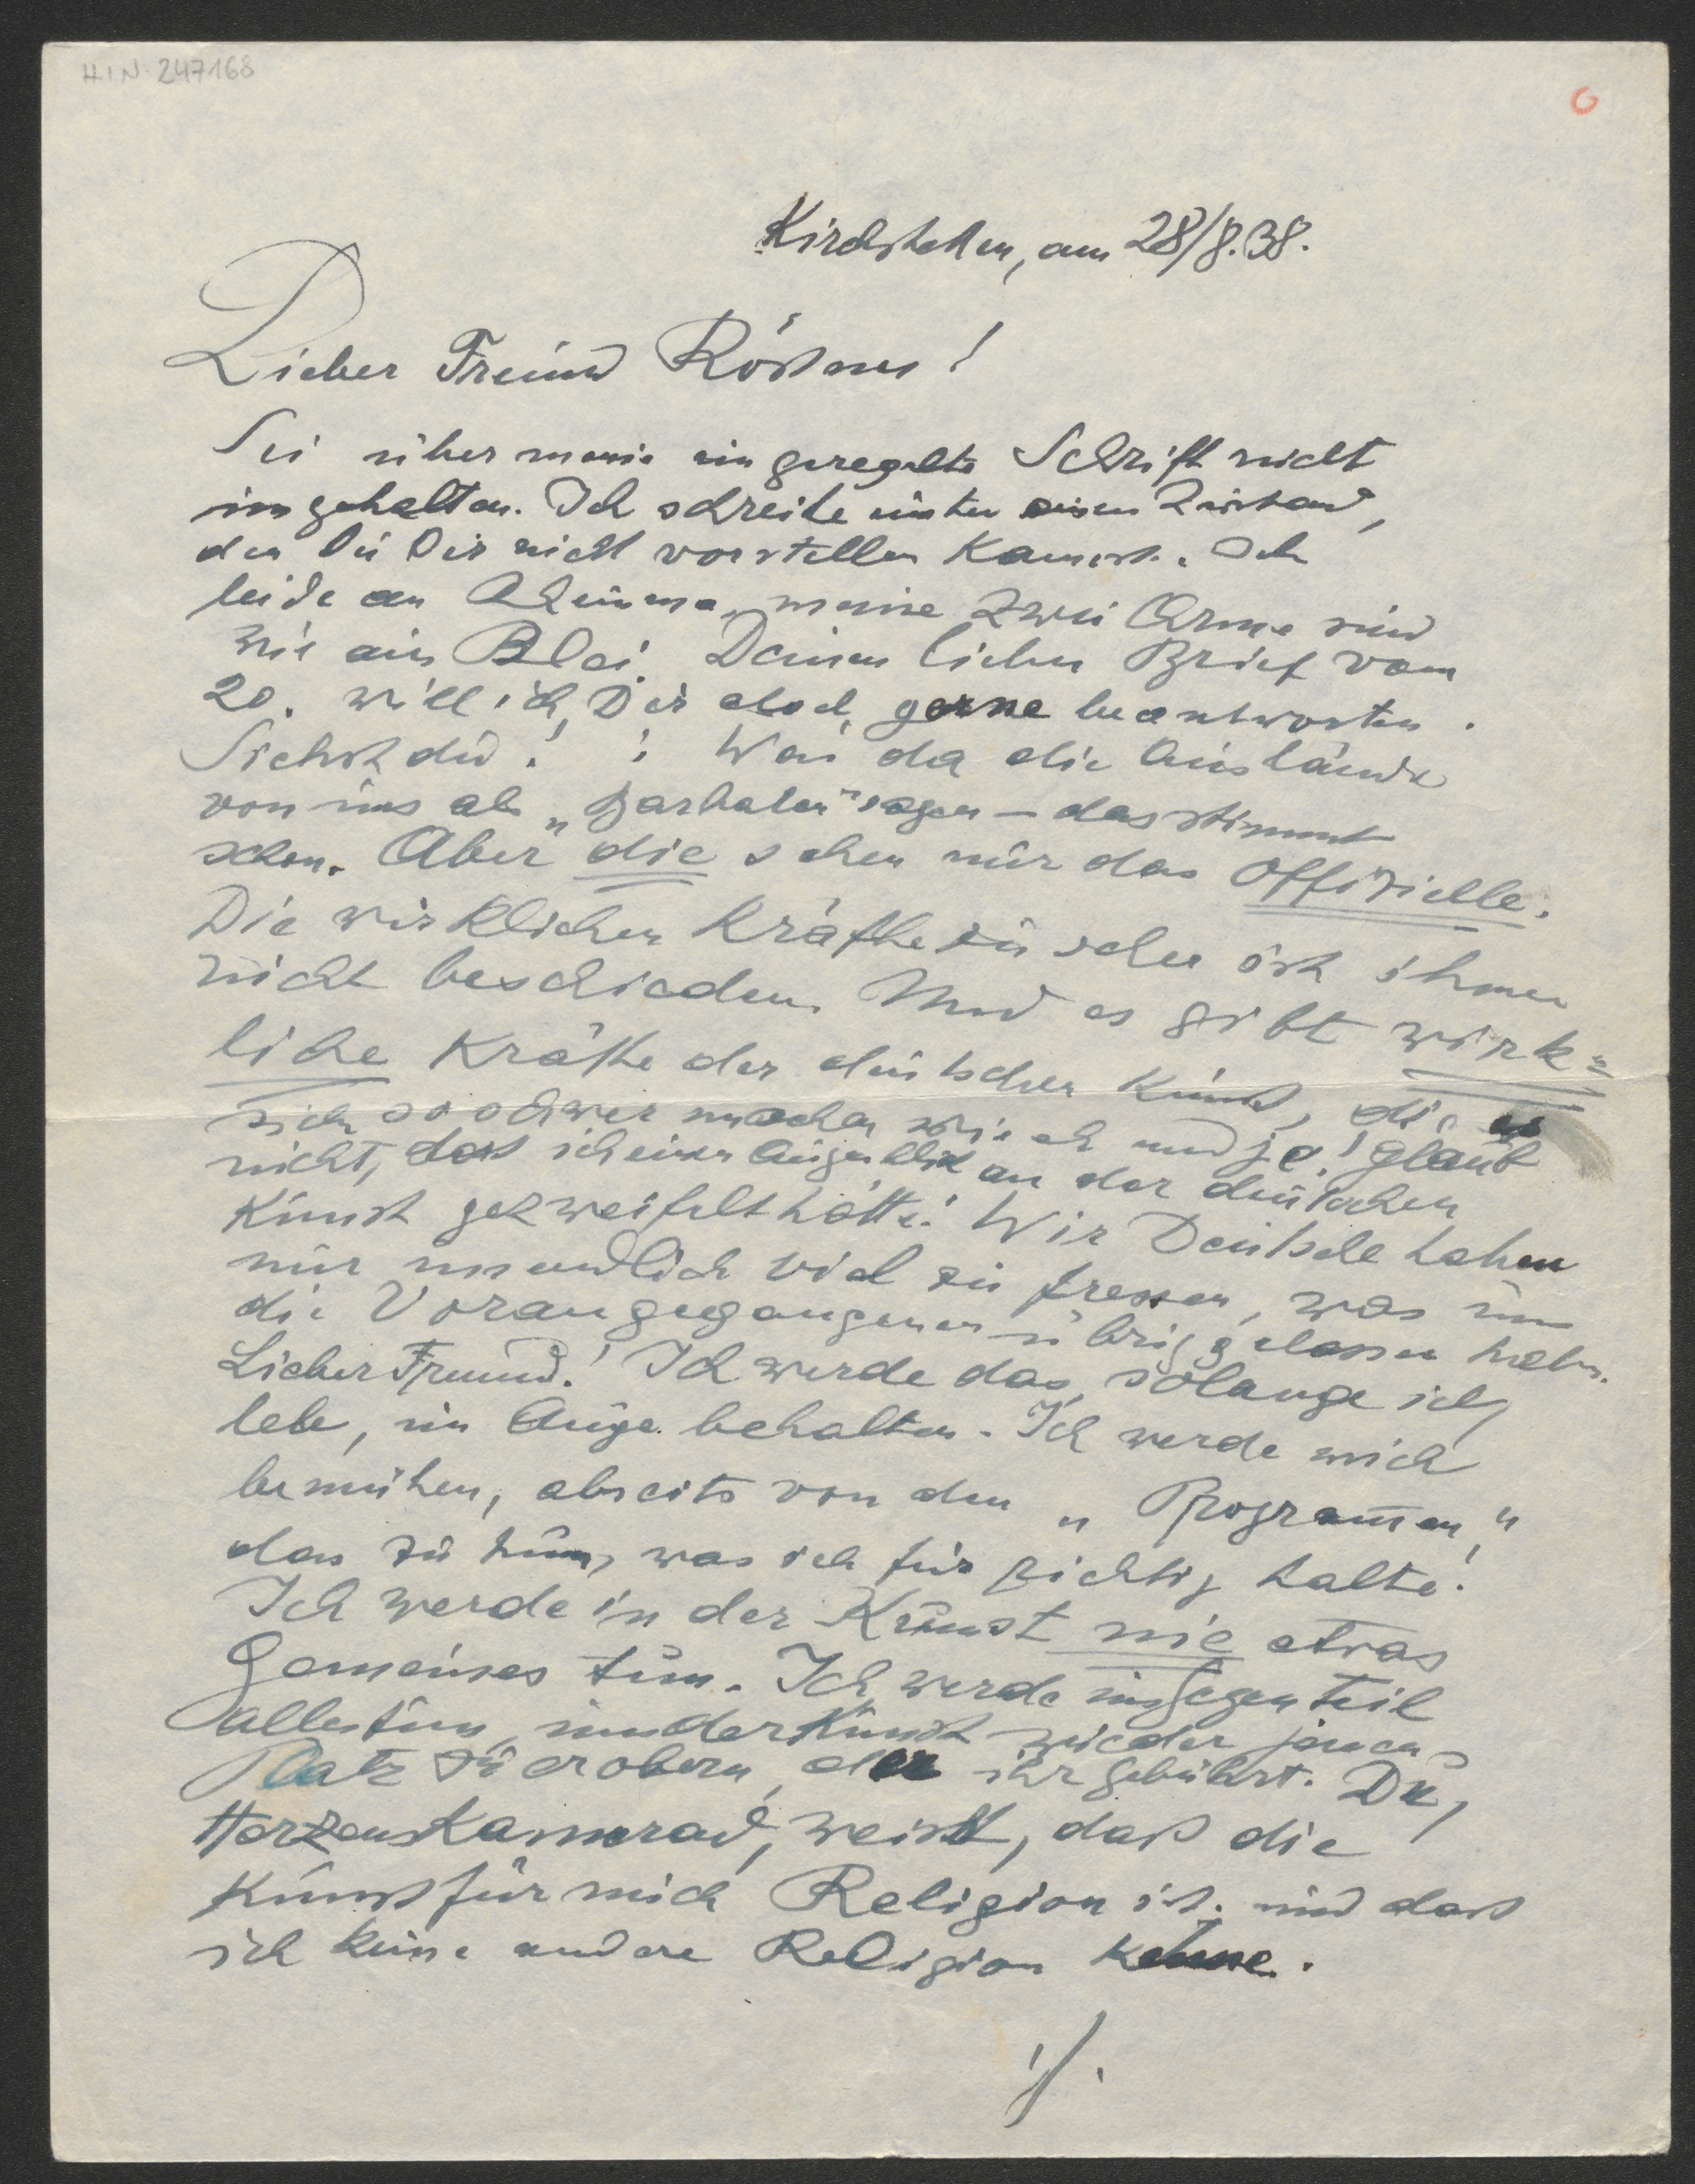 H.I.N. 247168
6
Kirchstetten, am 28/8.38.
Lieber Freund Rößner!
Sei über meine ungeregelte Schrift nicht
ungehalten. Ich schreibe unter einen Zustand,
den Du Dir nicht vorstellen kannst. Ich
leide an Rheuma, meine zwei Arme sind
wie ein Blei. Deinen lieben Brief vom
20. will ich Dir doch gerne beantworten.
Siehst du! : Was da die Ausländer
von uns als „Barbaren" sagen – das stimmt
schon. Aber die sehen nur das Offizielle.
Die wirklichen Kräfte zu sehen ist ihnen
nicht beschieden. Und es gibt wirk=
liche Kräfte der deutschen Kunst, die es
sich so schwer machen wie eh und je! Glaub
nicht, dass ich einen Augenblick an der deutschen
Kunst gezweifelt hätte! Wir Deutsche haben
nur unendlich viel zu fressen, was uns
die Vorangegangenen übriggelassen haben.
Lieber Freund! Ich werde das, solange ich
lebe, im Auge behalten. Ich werde mich
bemühen, abseits von den „Programmen"
das zu tun, was ich für richtig halte!
Ich werde in der Kunst nie etwas
Gemeines tun. Ich werde im Gegenteil
alles tun, um der Kunst wieder jenen
Platz zu erobern, der ihr gebührt. Du,
Herzenskamerad, weißt, daß die
Kunst für mich Religion ist. und dass
ich keine andere Religion kenne.
./.